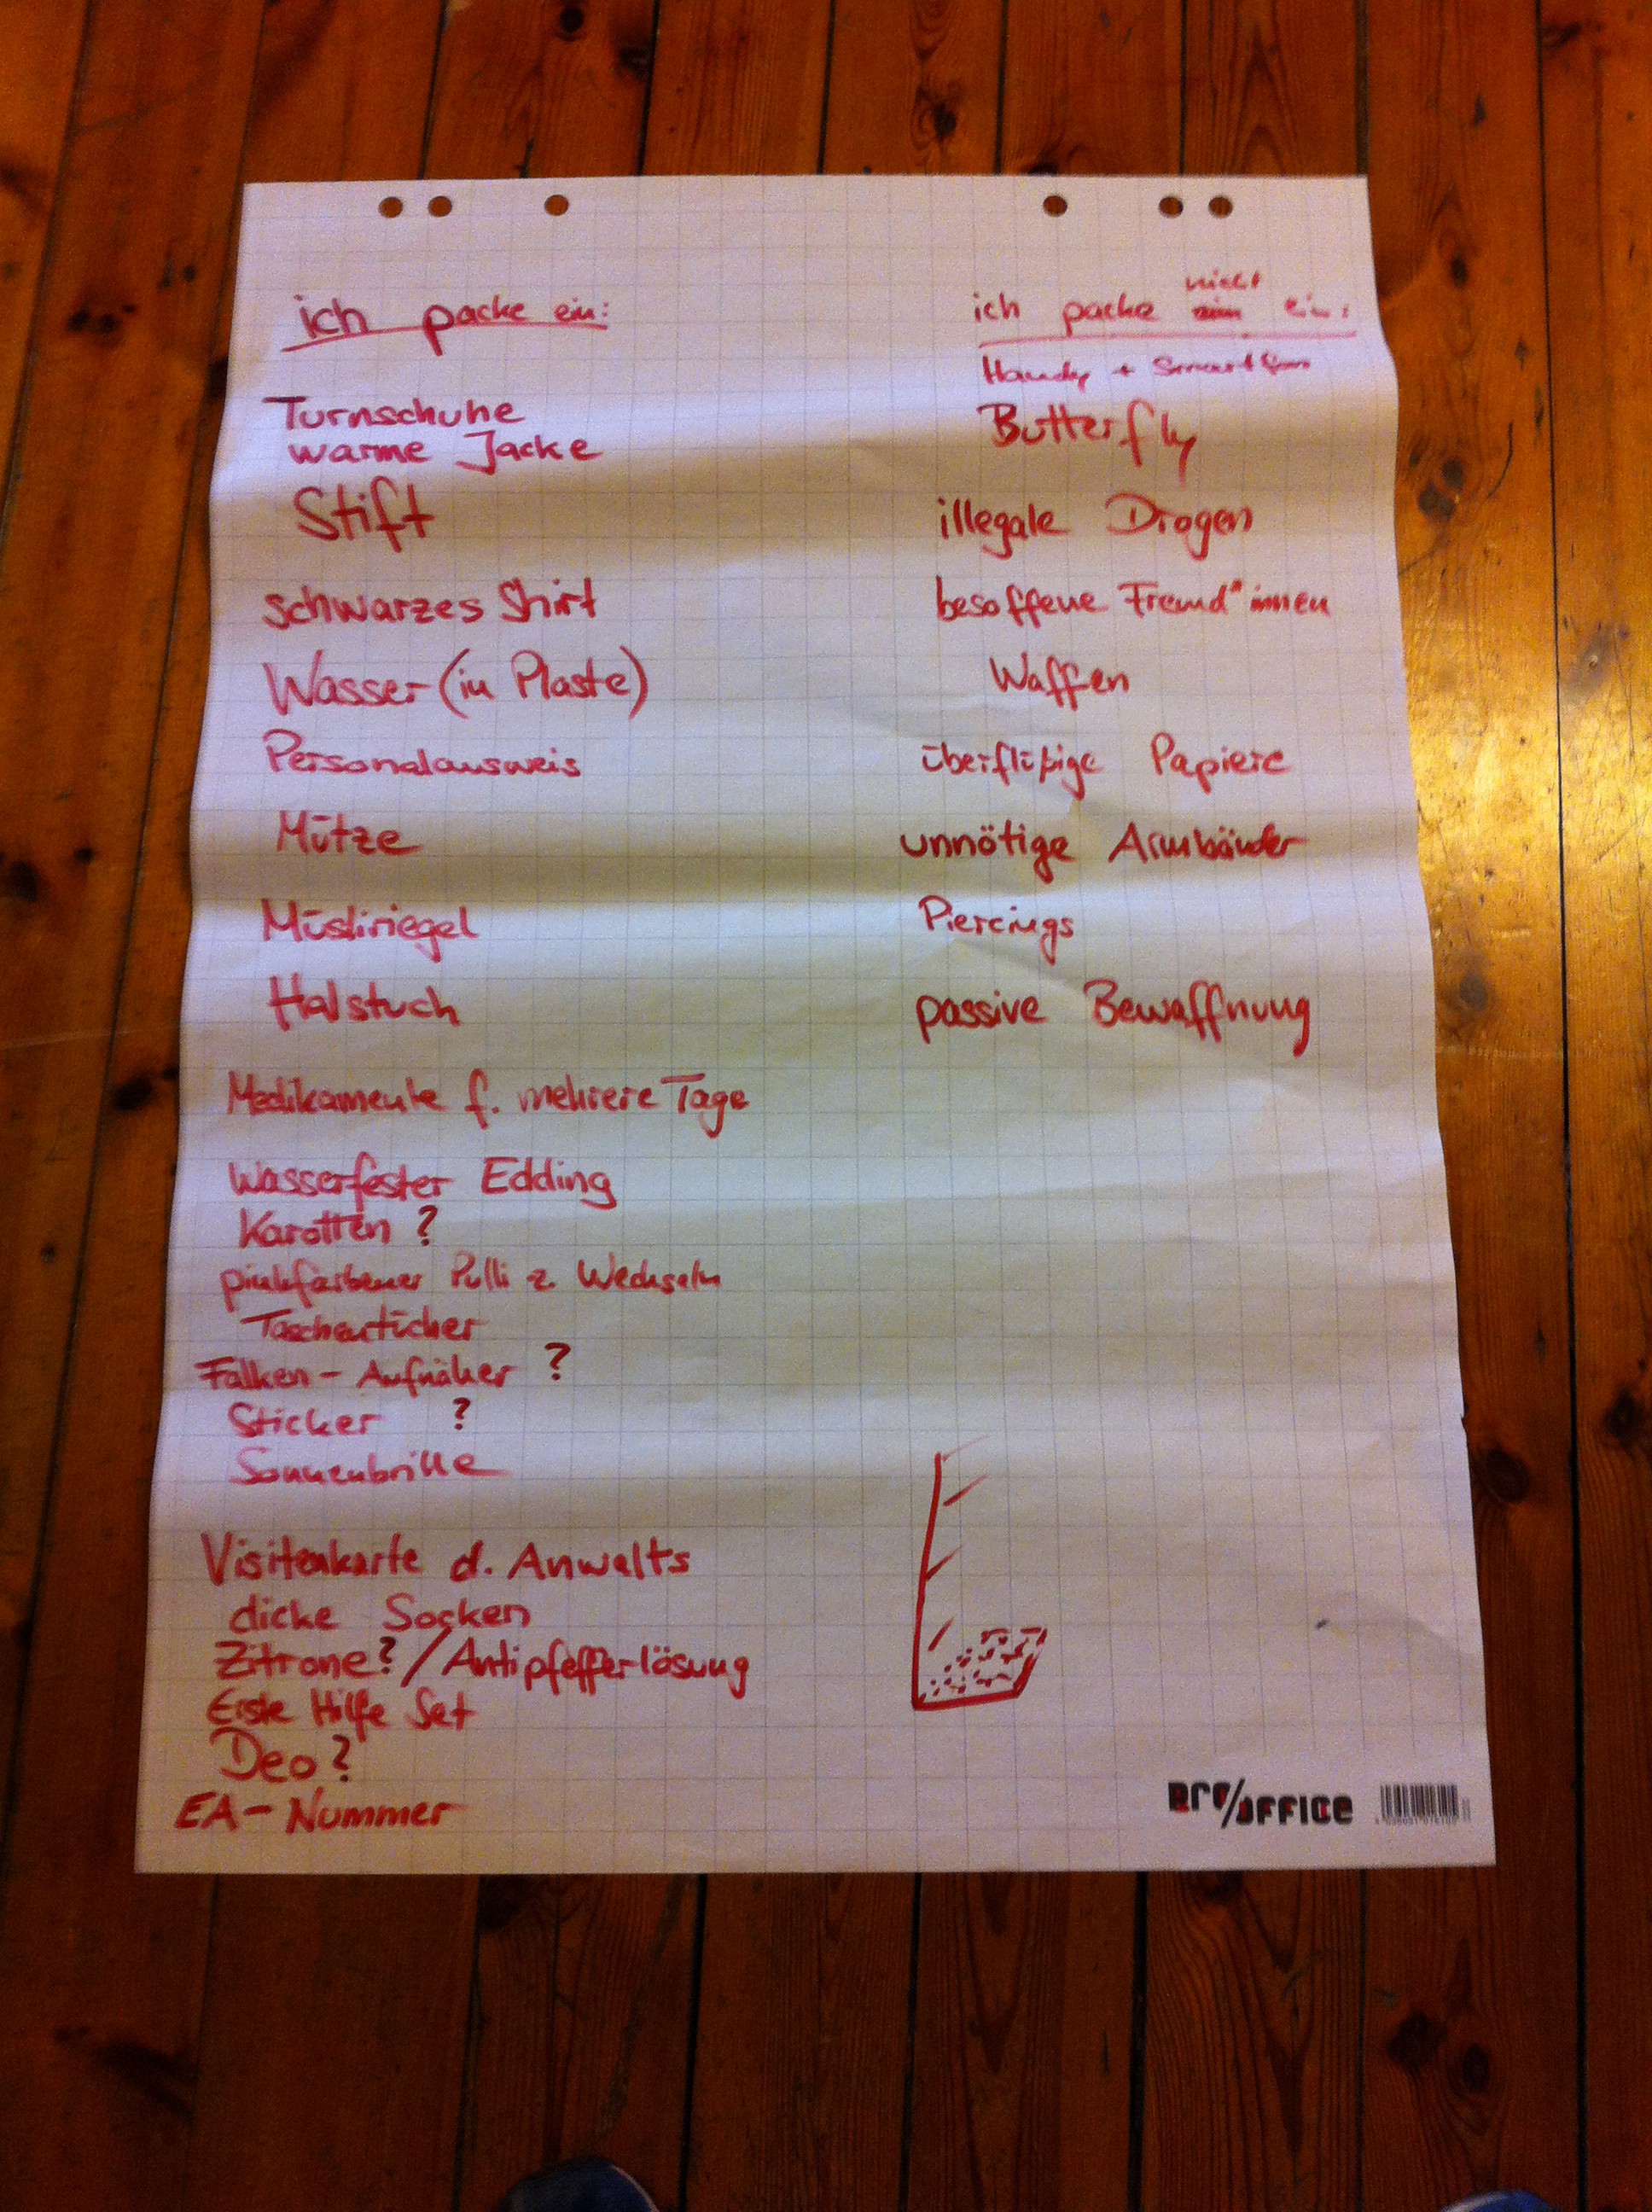 ich packe ein:
Turnschuhe
warme Jacke
Stift
schwarzes Shirt
Wasser (in Plaste)
Personalausweis
Mütze
Müsliriegel
Halstuch
Medikamente f. mehrere Tage
Wasserfester Edding
Karotten ?
pinkfarbener Pulli z. Wechseln
Taschentücher
Falken - Aufnäher ?
Sticker ?
Sonnenbrille
Visitenkarte d. Anwalts
dicke Socken
Zitrone? / Antipfefferlösung
Erste Hilfe Set
Deo?
EA - Nummer
ich packe nicht ein:
Handy +
Butterfly
illegale Drogen
besoffene Freund*innen
Waffen
überflüßige Papiere
unnötige Armbänder
Piercings
passive Bewaffnung
pro/OFFICE